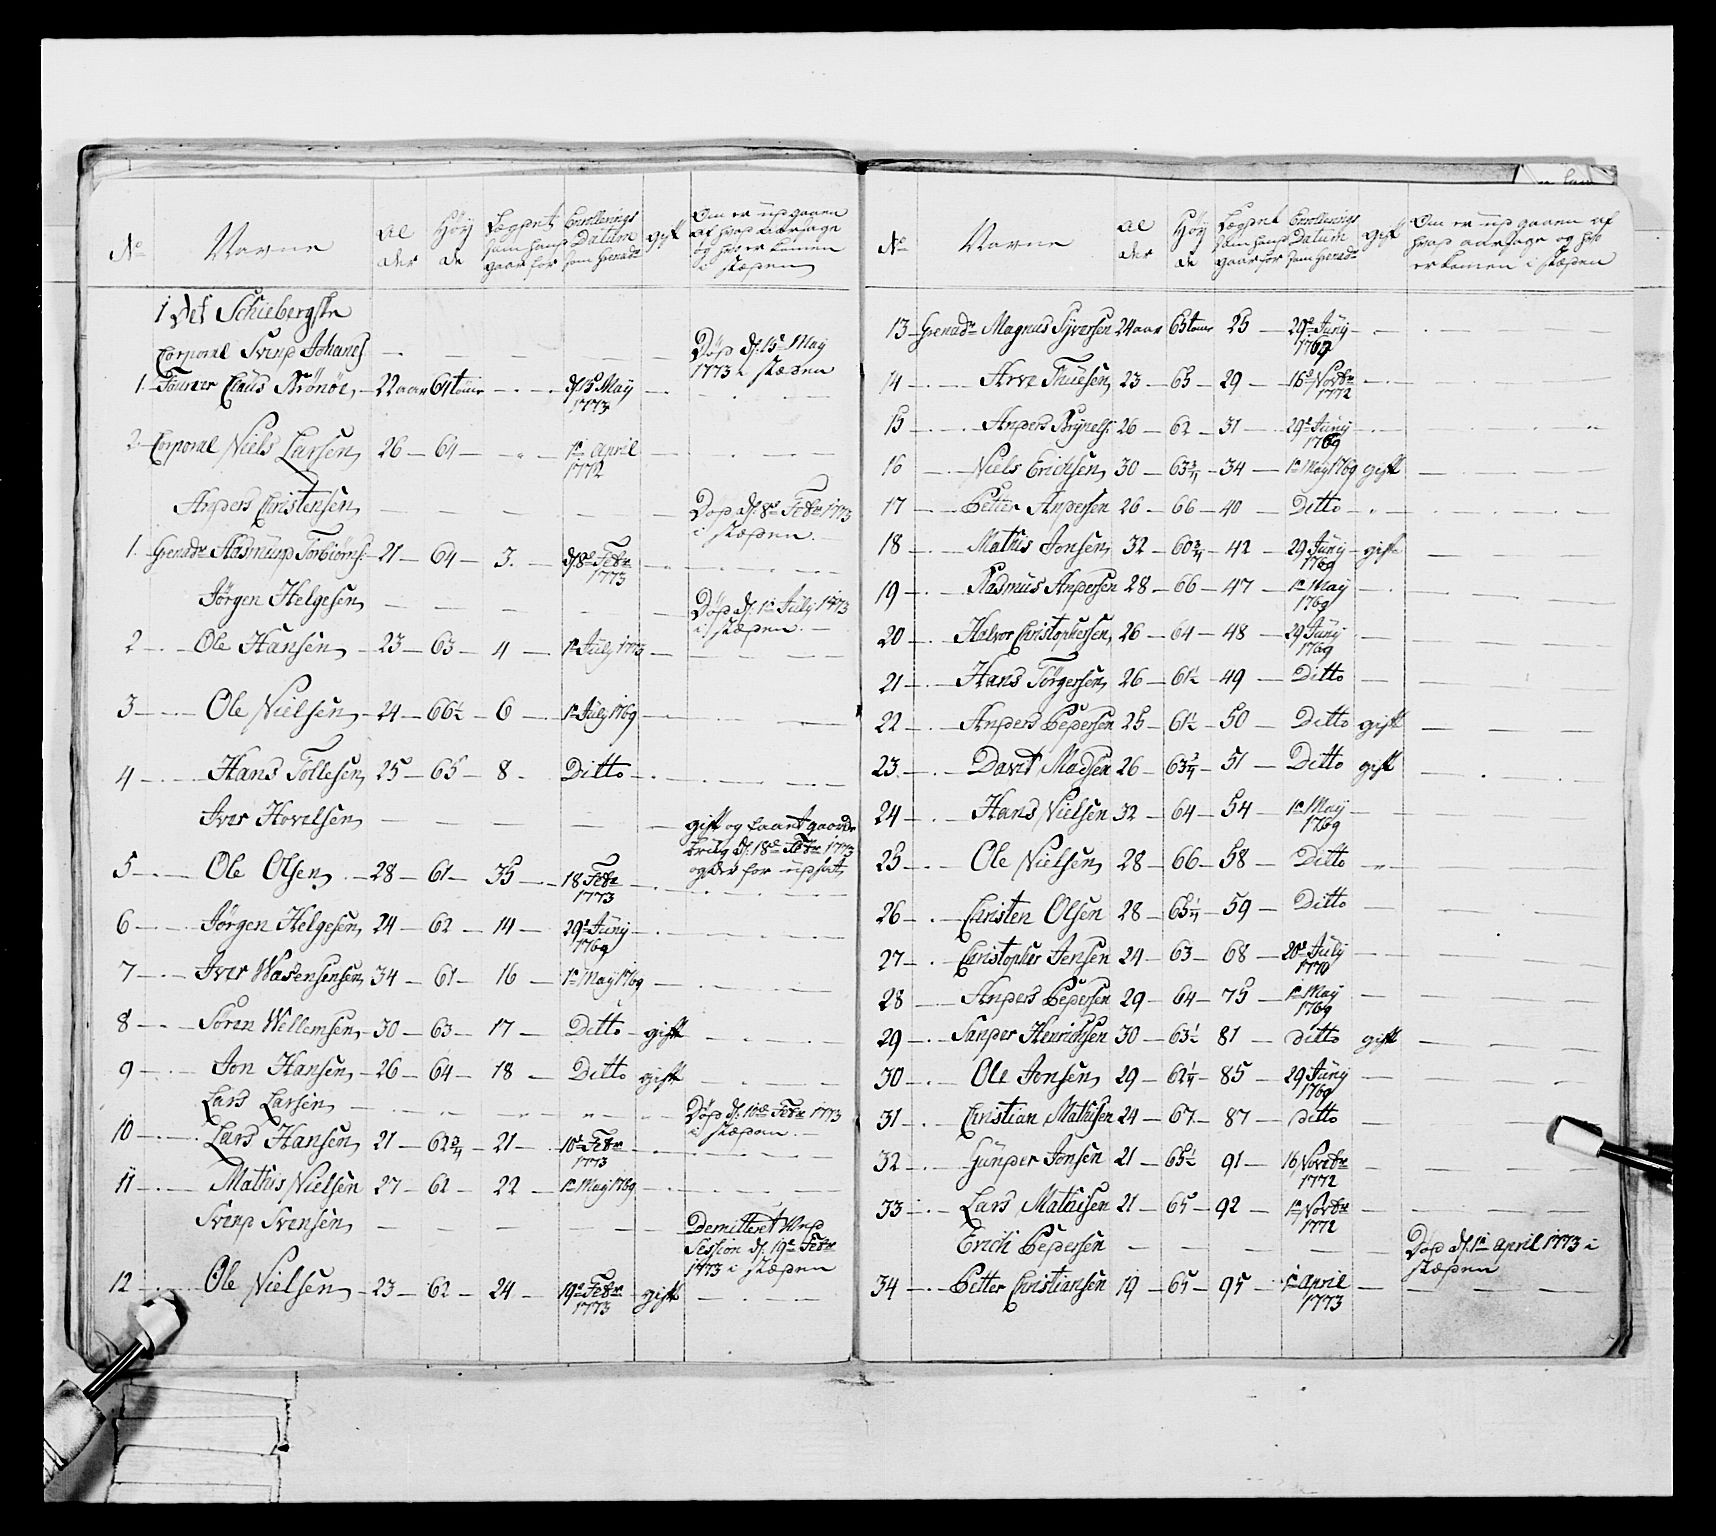 No Navne Al der Høy de Lægnet som hand gaar for Enrollerings Datum som Grenadr gift Om er udgaaen af hvad aarsage og hvo er komen i stæden
1 Det Schiebergske
Corporal Svend Johans. — — — — — Død d. 15de May 1773 i stæden
1. Fourer Claus Brönöe, 22 aar 64 tomr — d. 15 May 1773 —
2 Corporal Niels Larsen, 26 — 64 — — 1te April 1772 —
Anders Christensen, — — — — — Død d. 8de Febr 1773 i stæden.
1. Grenadr Aasmund Torbiörns. 21 — 64 — 3. — d. 8de Febr 1773 —
Jörgen Helgesen, — — — — — Død d. 1te July 1773 i stæden. —
2 — Ole Hansen, 23 — 63 — 4 — 1te July 1773 —
3 — Ole Nielsen, 24 — 66½ — 6 — 1te July 1769 —
4 — Hans Tollesen, 25 — 65 — 8 — Ditto —
Iver Hovelsen, — — — — — gift og faaet gaardbrug d. 18de Febr 1773 og derfor udsat,
5 — Ole Olsen, 28 — 61 — 35 — 18 Febr 1773 —
6 — Jörgen Helgesen, 24 — 62 — 14 — 29de Juny 1769 —
7 — Iver 34 — 61 — 16 — 1te May 1769 —
8 — Sören Wellemsen, 30 — 63 — 17 — Ditto — gift —
9 — Jon Hansen, 26 — 64 — 18 — Ditto gift —
Lars Larsen, — — — — — Død d. 10de Febr 1773 i stæden —
10 — Lars Hansen, 21 — 62¾ — 21 — 10de Febr 1773 —
11 — Mathis Nielsen 27 — 62 — 22 — 1te May 1769 —
Svend Svensen, — — — — — Demitteret Ved Session d. 19de Febr 1773 i stæden
12 — Ole Nielsen, 23 — 62 — 24 — 19de Febr 1773 — gift —
No Navne Al der Høy de Lægnet som hand gaar for Enrollerings Datum som Grenadr gift Om er udgaaen af hvad aarsage og hvo er komen i stæden
13 Grenadr Magnus Syversen 24 aar 65 tomr 25 — 29de Juny 1769 —
14 — Arve Thuesen, 23 — 65 — 29 — 16de Novbr 1772 —
15 — Anders Brynels. 26 — 62 — 31 — 29de Juny 1769 —
16 — Niels Erichsen, 30 — 63¾ — 34 — 1te May 1769 gift —
17 — Petter Andersen 26 — 66 — 40 — Ditto —
18 — Mathis Jonsen, 32 — 60¾ — 42 — 29 Juny 1769 — gift —
19 — Rasmus Andersen 28 — 66 — 47 — 1te May 1769 —
20 — Halvor Christophersen, 26 — 64 — 48 — 29 Juny 1769 —
21 — Hans Törgersen, 26 — 61½ — 49 — Ditto —
22 — Anders Pedersen 25 — 61½ — 50 — Ditto gift —
23 — David Madsen 26 — 63¾ — 51 — Ditto gift —
24 — Hans Nielsen 32 — 64 — 54 — 1te May 1769 —
25 — Ole Nielsen, 28 — 66 — 58 — Ditto —
26 — Christen Olsen 28 — 65¼ — 59 — Ditto —
27 — Christopher Jensen 24 — 63 — 68 — 20de July 1770 —
28 — Anders Pedersen 29 — 64 — 75 — 1te May 1769 —
29 — Sander Henrichsen 30 — 63½ 81 — ditto gift —
30 — Ole Jensen, 29 — 62¼ — 85 — 29 Juny 1769 —
31 — Christian Mathisen 24 — 67 — 87 — ditto —
32 — Gunder Jonsen 21 — 65½ 91 — 16 Novebr 1772 —
33 — Lars Mathisen 21 — 65 — 92 — 1te Novbr 1772 —
Erich Pedersen — — — — — Død d. 1te April 1773 i stæden
34 — Petter Christiansen 19 — 65 — 95 — 1te April 1773 —